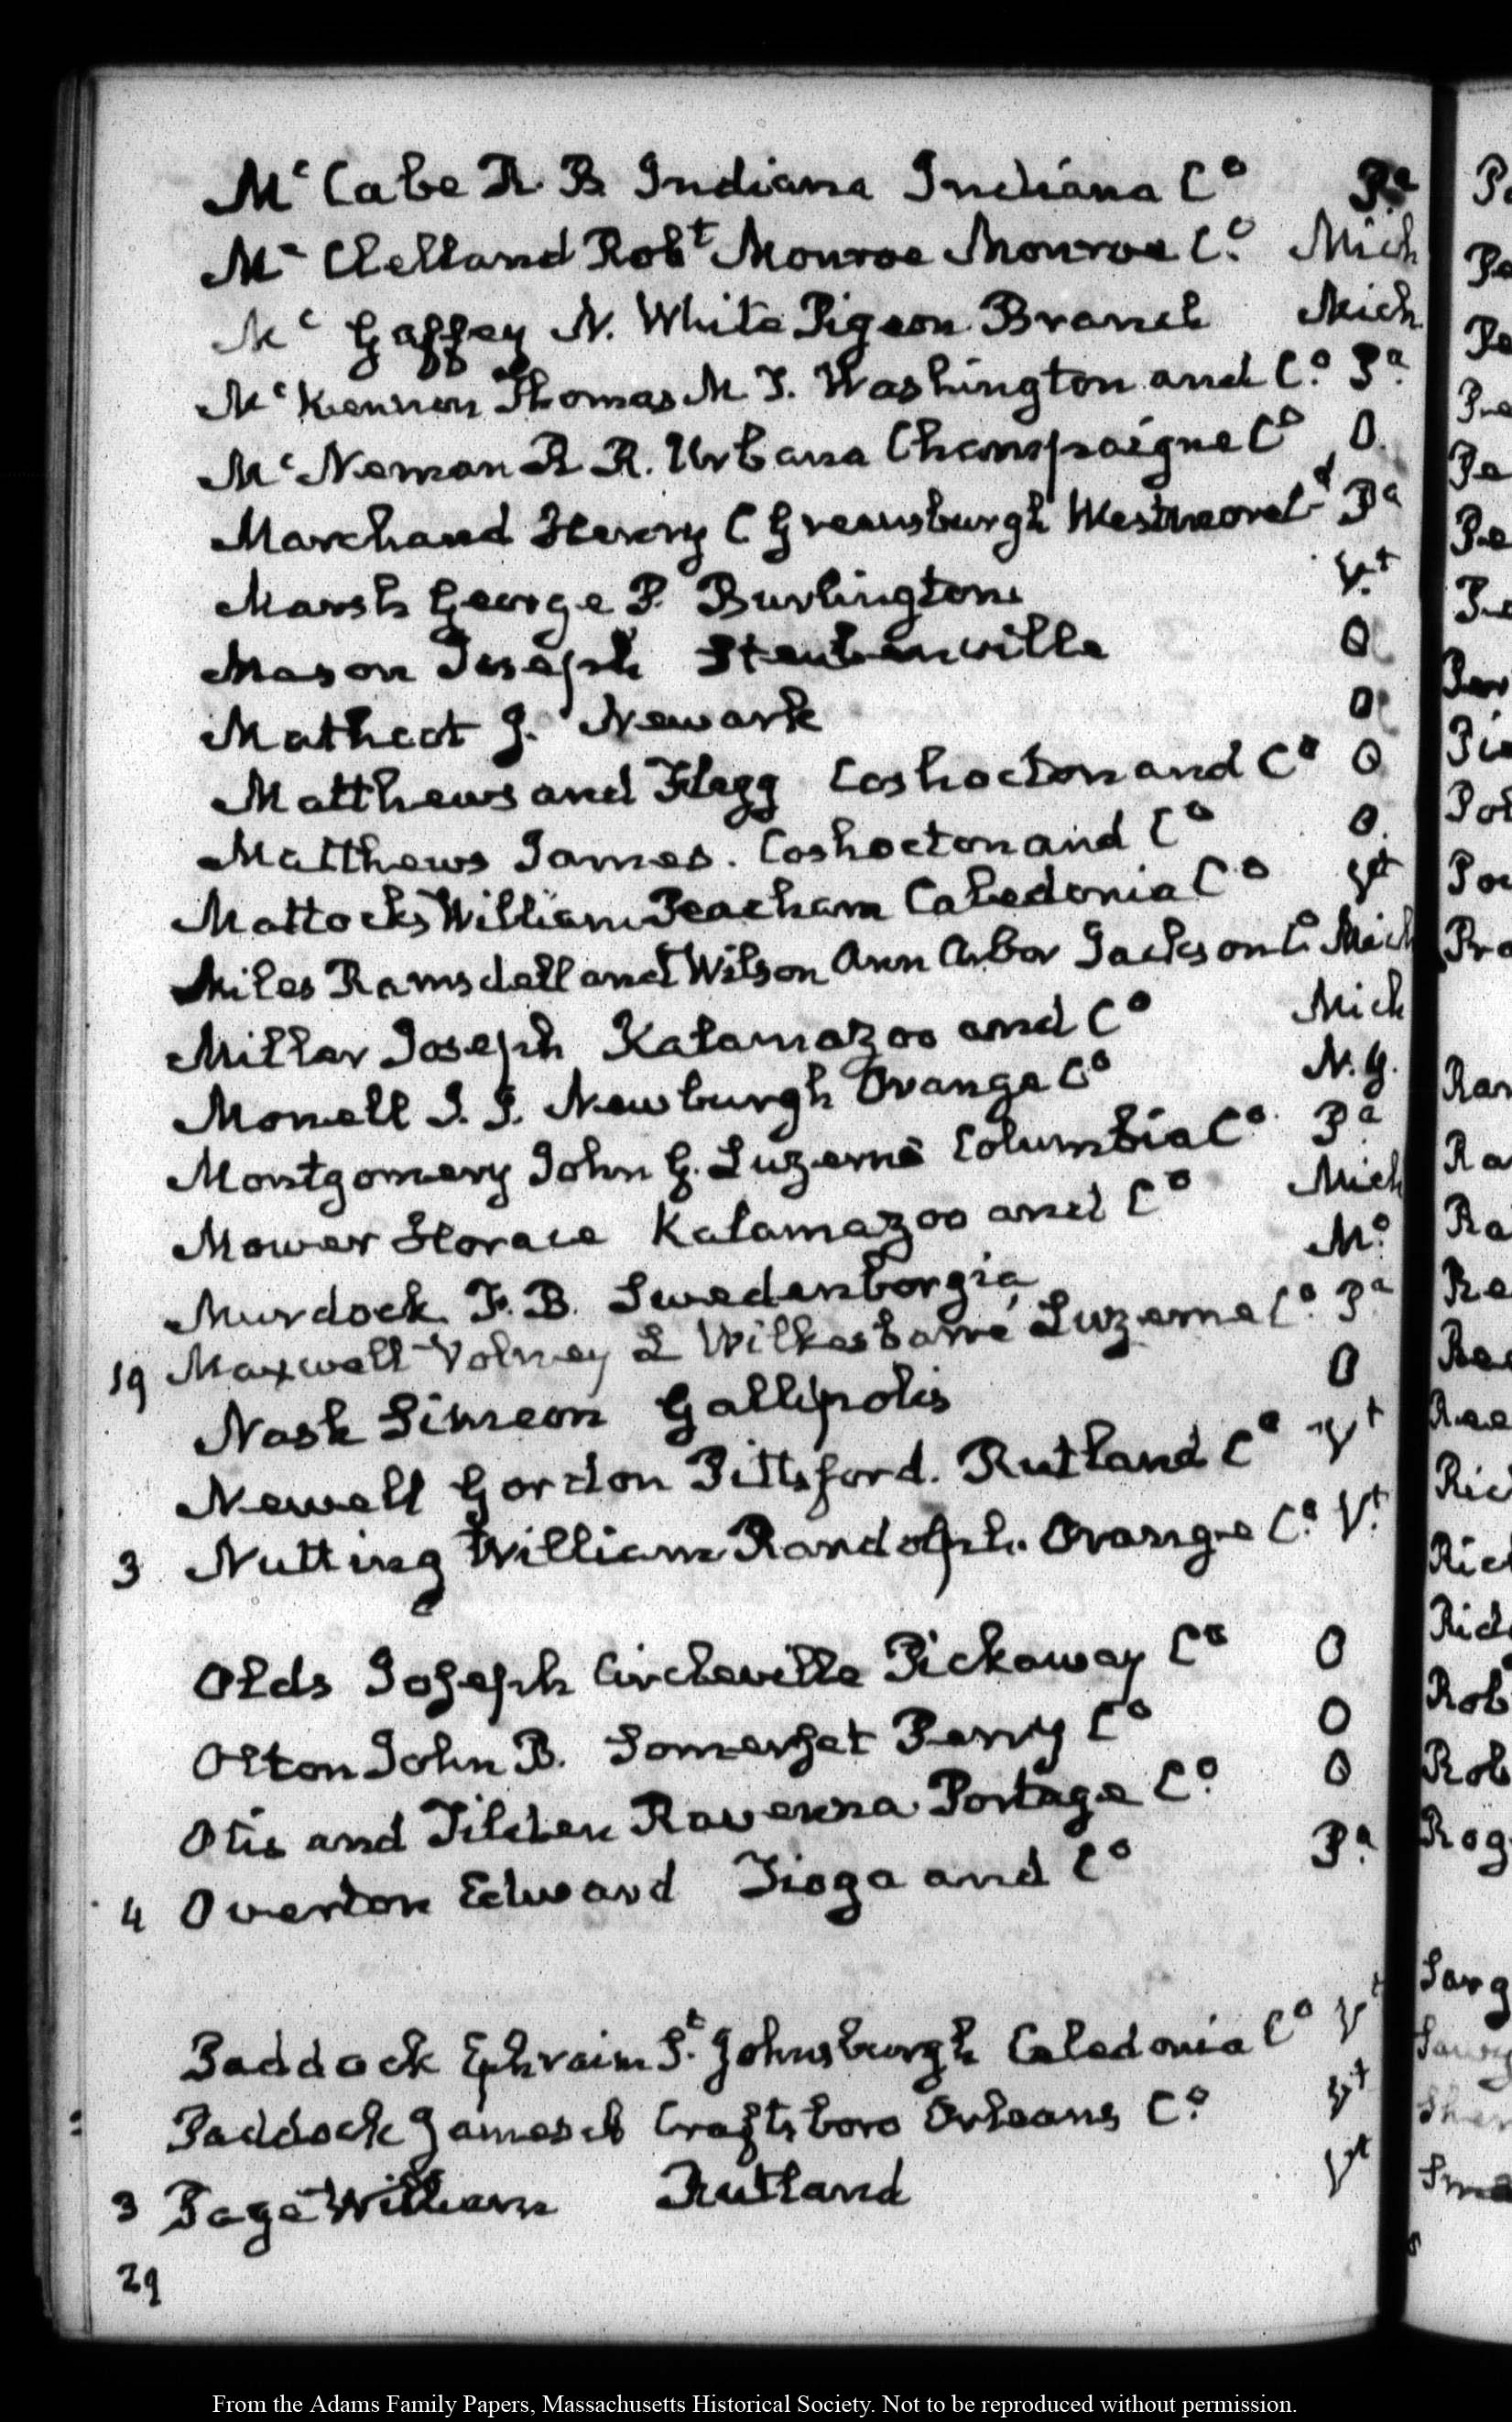 Mc Cabe R. B Indiana Indiana Co Pa
Mc Clelland Robt Monroe Monroe Co. Mich
Mc Gaffey N. White Pigeon Branch Mich
Mc Kennen Thomas M T. Washington and Co. Pa.
Mc Neman R R. Urbana Champaigne Co O.
Marchand Henry C Greensburgh Westmoreld Pa
Marsh George P. Burlington Vt
Mason Joseph Steubenville O
Mathcot J. Newark O
Matthews and Flegg Coshocton and Co O
Matthews James. Coshocton and Co O.
Mattocks William Peacham Caledonia Co Vt
Miles Ramsdell and Wilson Ann Arbor Jackson Co Mich
Millar Joseph Kalamazoo and Co Mich
Monell J. J. Newburgh Orange Co N.Y.
Montgomery John G. Luzerne Columbia Co. Pa
Mower Horace Kalamazoo and Co Mich
Murdock F. B. Swedenborgia Mo.
19 Maxwell Volney L Wilkesbarre Luzerne Co. Pa
Nash Simeon Gallipolis O
Newell Gordon Pittsford. Rutland Co Vt
3 Nutting William Randolph. Orange Co. Vt.
Olds Joseph Circleville Pickaway Co O
Olton John B. Somerset Perry Co O
Otis and Tilden Ravenna Portage Co. O
4 Overton Edward Tioga and Co Pa.
Paddock Ephraim St. Johnsburgh Caledonia Co Vt
Paddock James Craftsboro Orleans Co. Vt
3 Page William Rutland Vt
29
From the Adams Family Papers, Massachusetts Historical Society. Not to be reproduced without permission.